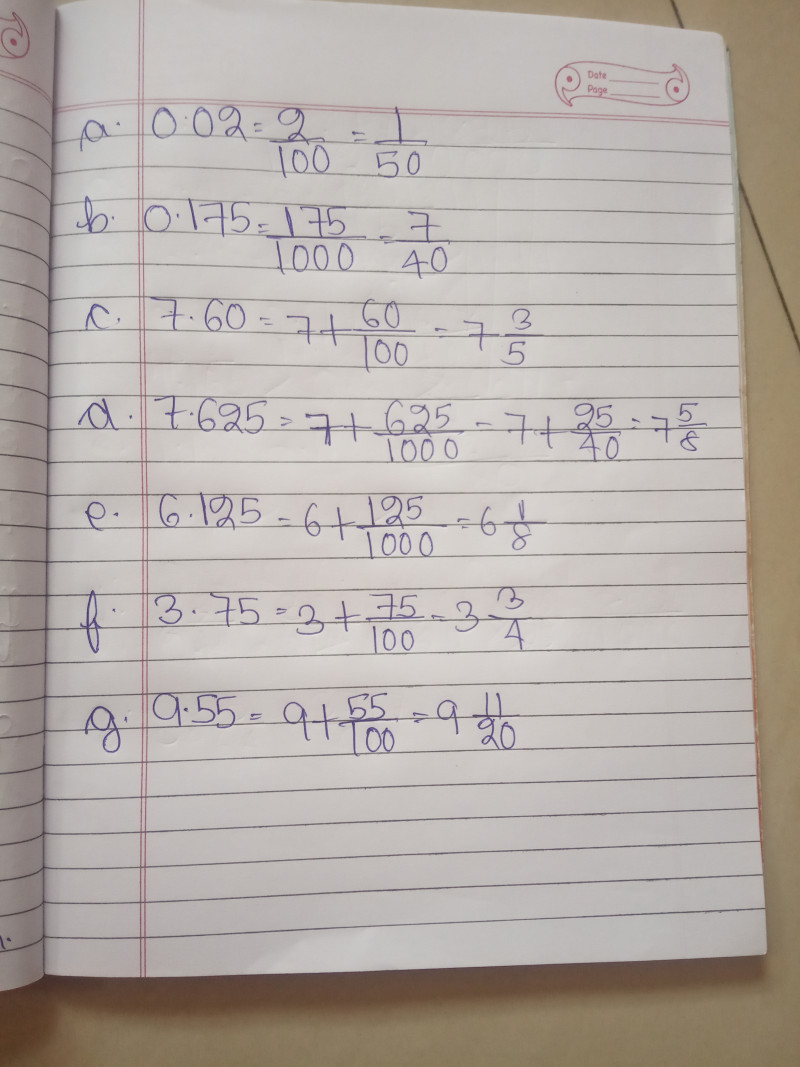 Date
Page
a. 0.02 = 2/100 = 1/50
b. 0.175 = 175/1000 = 7/40
c. 7.60 = 7 + 60/100 = 7 3/5
d. 7.625 = 7 + 625/1000 = 7 + 25/40 = 7 5/8
e. 6.125 = 6 + 125/1000 = 6 1/8
f. 3.75 = 3 + 75/100 = 3 3/4
g. 9.55 = 9 + 55/100 = 9 11/20